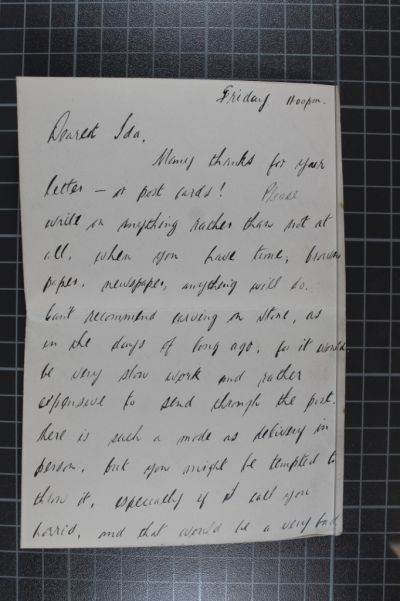 Friday 11.00pm.
Dearest Ida,
Many thanks for your
letter – or post cards! Please
write on anything rather than not at
all, when you have time, brown
paper, newspaper, anything will do.
Can't recommend carving on stone, as
in the days of long ago, for it would
be very slow work and rather
expensive to send through the post.
There is such a mode as delivery in
person, but you might be tempted to
throw it, especially if I call you
horrid, and that would be a very bad